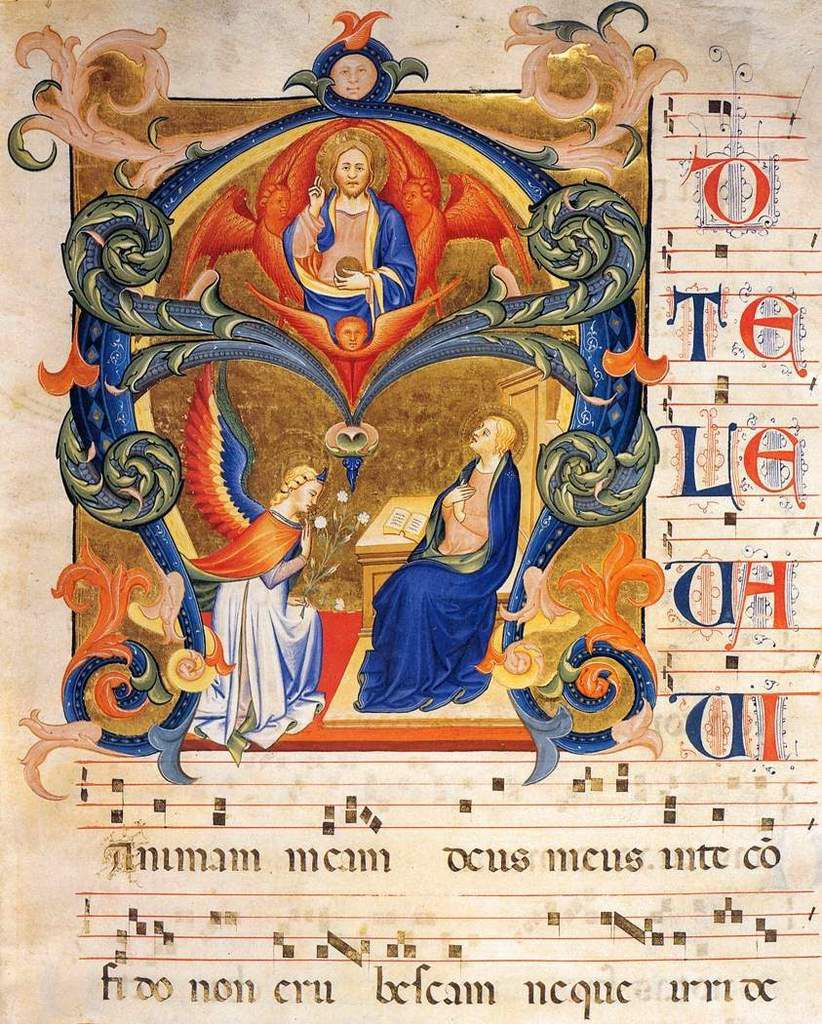 AD
TE
LE
VA
VI
Animam meam deus meus inte cō
fido non eru beſcam neque irri de